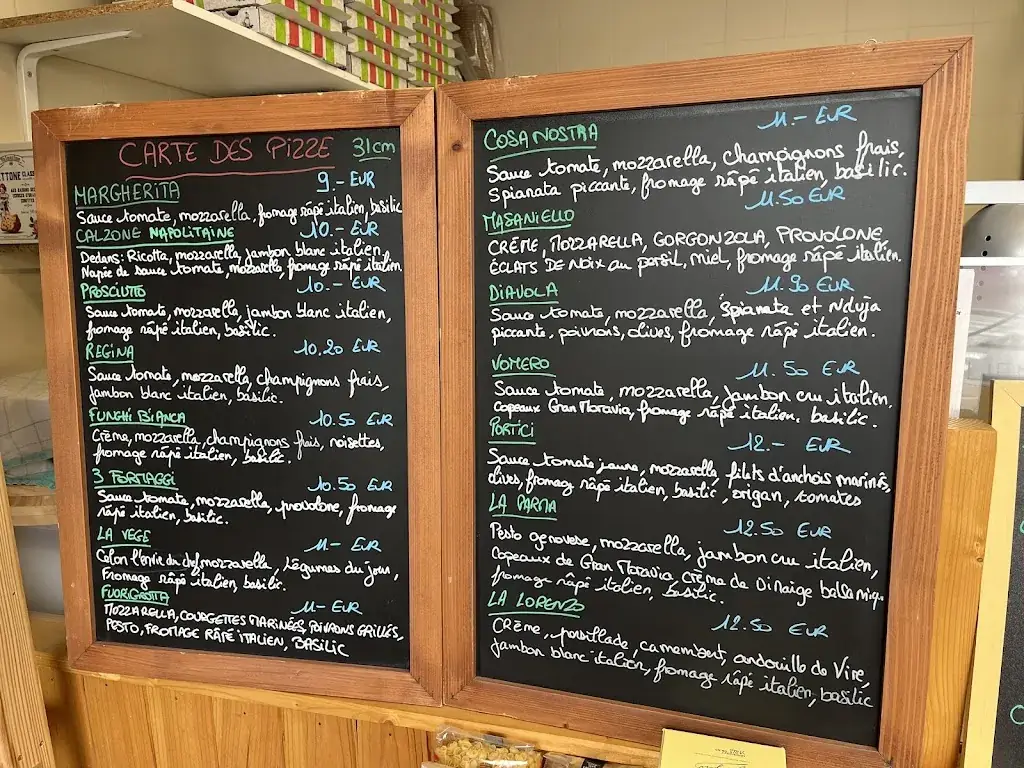 CARTE DES PIZZE 31cm
MARGHERITA 9.- EUR
Sauce tomate, mozzarella, fromage râpé italien, basilic
CALZONE NAPOLITAINE 10.- EUR
Dedans: Ricotta, mozzarella, jambon blanc italien,
Napée de sauce tomate, mozzarella, fromage râpé italien.
PROSCIUTTO 10.- EUR
Sauce tomate, mozzarella, jambon blanc italien,
fromage râpé italien, basilic.
REGINA 10.20 EUR
Sauce tomate, mozzarella, champignons frais,
jambon blanc italien, basilic.
FUNGHI BIANCA 10.50 EUR
Crème, mozzarella, champignons frais, noisettes,
fromage râpé italien, basilic.
3 FORMAGGI 10.50 EUR
Sauce tomate, mozzarella, provolone, fromage
râpé italien, basilic.
LA VEGE 11- EUR
Selon l'envie du chef, mozzarella, Légumes du jour,
Fromage râpé italien, basilic.
FUORIGROTTA 11- EUR
MOZZARELLA, COURGETTES MARINÉES, POIVRONS GRILLÉS,
PESTO, FROMAGE RÂPÉ ITALIEN, BASILIC
COSA NOSTRA 11.- EUR
Sauce tomate, mozzarella, champignons frais,
Spianata piccante, fromage râpé italien, basilic.
MASANIELLO 11.50 EUR
CRÈME, MOZZARELLA, GORGONZOLA, PROVOLONE,
ÉCLATS DE NOIX au persil, miel, fromage râpé italien.
DIAVOLA 11.90 EUR
Sauce tomate, mozzarella, Spianata et Nduja
piccante, poivrons, olives, fromage râpé italien.
VOMERO 11.50 EUR
Sauce tomate, mozzarella, Jambon cru italien,
Copeaux Gran Moravia, fromage râpé italien, basilic.
PORTICI 12.- EUR
Sauce tomate jaune, mozzarella, filets d'anchois marinés,
olives, fromag râpé italien, basilic, origan, tomates
LA PARMA 12.50 EUR
Pesto genovese, mozzarella, jambon cru italien,
Copeaux de Gran Moravia, Crème de Vinaigre balsamique
fromage râpé italien, basilic.
LA LORENZO 12.50 EUR
Crème, persillade, camembert, andouille de Vire,
Jambon blanc italien, fromage râpé italien, basilic